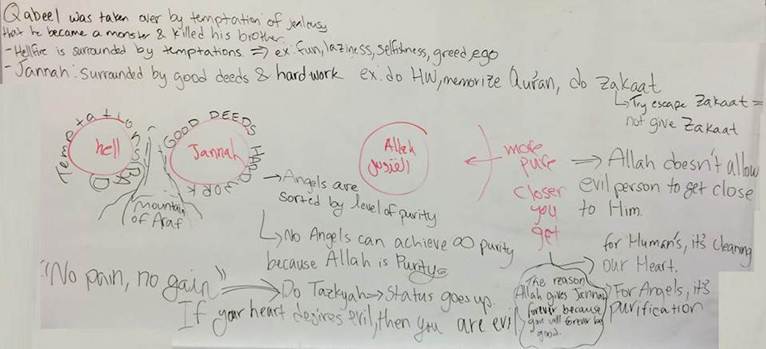 Qabeel was taken over by temptation of jealousy
that he became a monster & killed his brother
- Hellfire is surrounded by temptations => ex. fun, laziness, selfishness, greed, ego
- Jannah: surrounded by good deeds & hard work ex. do HW, memorize Quran, do Zakaat
Try escape Zakaat =
not give Zakaat
Temptations
BAD
hell
GOOD DEEDS
HARD WORK
Jannah
mountain
of Araf
Allah
القدوس
more
pure
closer
you
get
=> Allah doesn't allow
evil person to get close
to Him.
→ Angels are
sorted by level of purity
No Angels can achieve ∞ purity
because Allah is Purity
for Human's, it's cleaning
our Heart.
For Angels, it's
purification
"No pain, no gain"
Do Tazkyah → Status goes up.
If your heart desires evil, then you are evil
The reason
Allah gives Jannah
forever because
you will forever be
good.